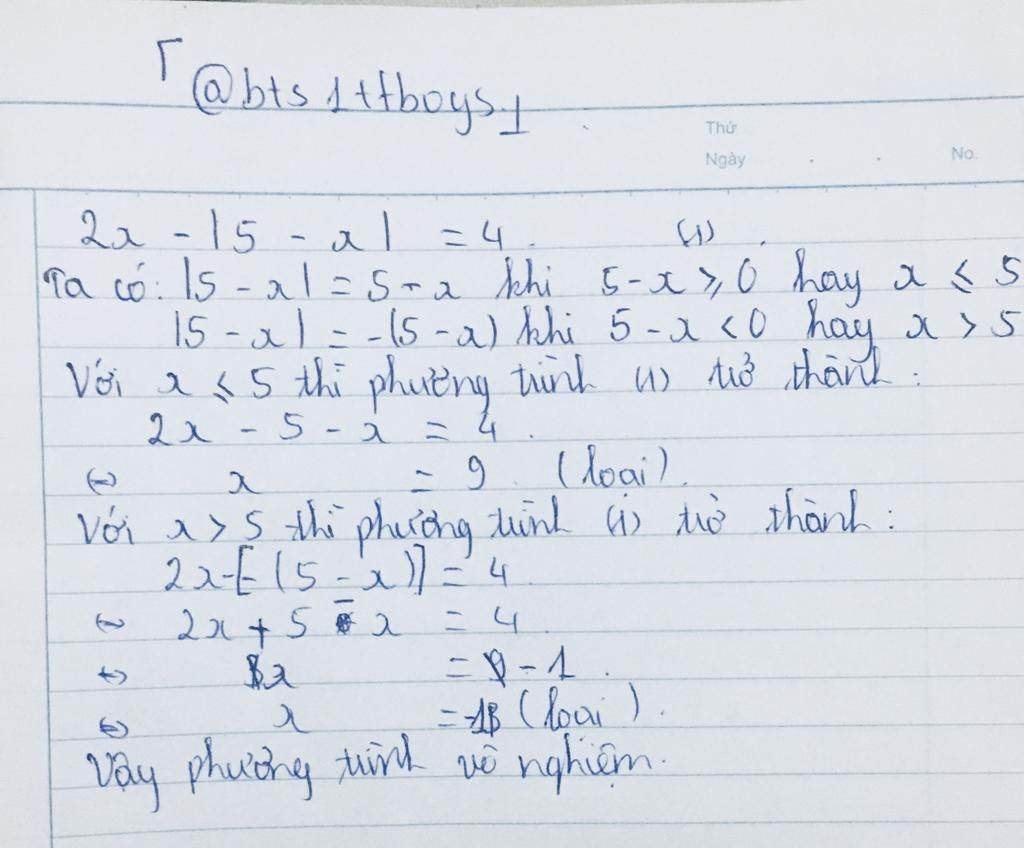 「@bts1tfboys」
Thứ
Ngày . . No.
2x - |5 - x| = 4. (1).
Ta có: |5 - x| = 5 - x khi 5-x ≥ 0 hay x ≤ 5
|5 - x| = -(5 - x) khi 5 - x < 0 hay x > 5
Với x ≤ 5 thì phương trình (1) trở thành:
2x - 5 - x = 4.
⇔ x = 9 (loại).
Với x > 5 thì phương trình (1) trở thành:
2x-[-(5 - x)] = 4
⇔ 2x + 5 - x = 4.
⇔ x = -1.
⇔ x = -1 (loại).
Vậy phương trình vô nghiệm.